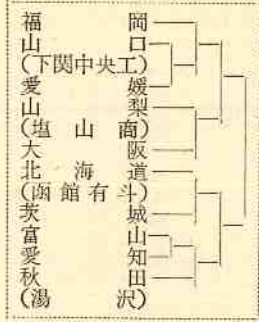 福岡
山口
(下関中央工)
愛媛
山梨
(塩山商)
大阪
北海道
(函館有斗)
茨城
富山
愛知
秋田
(湯沢)